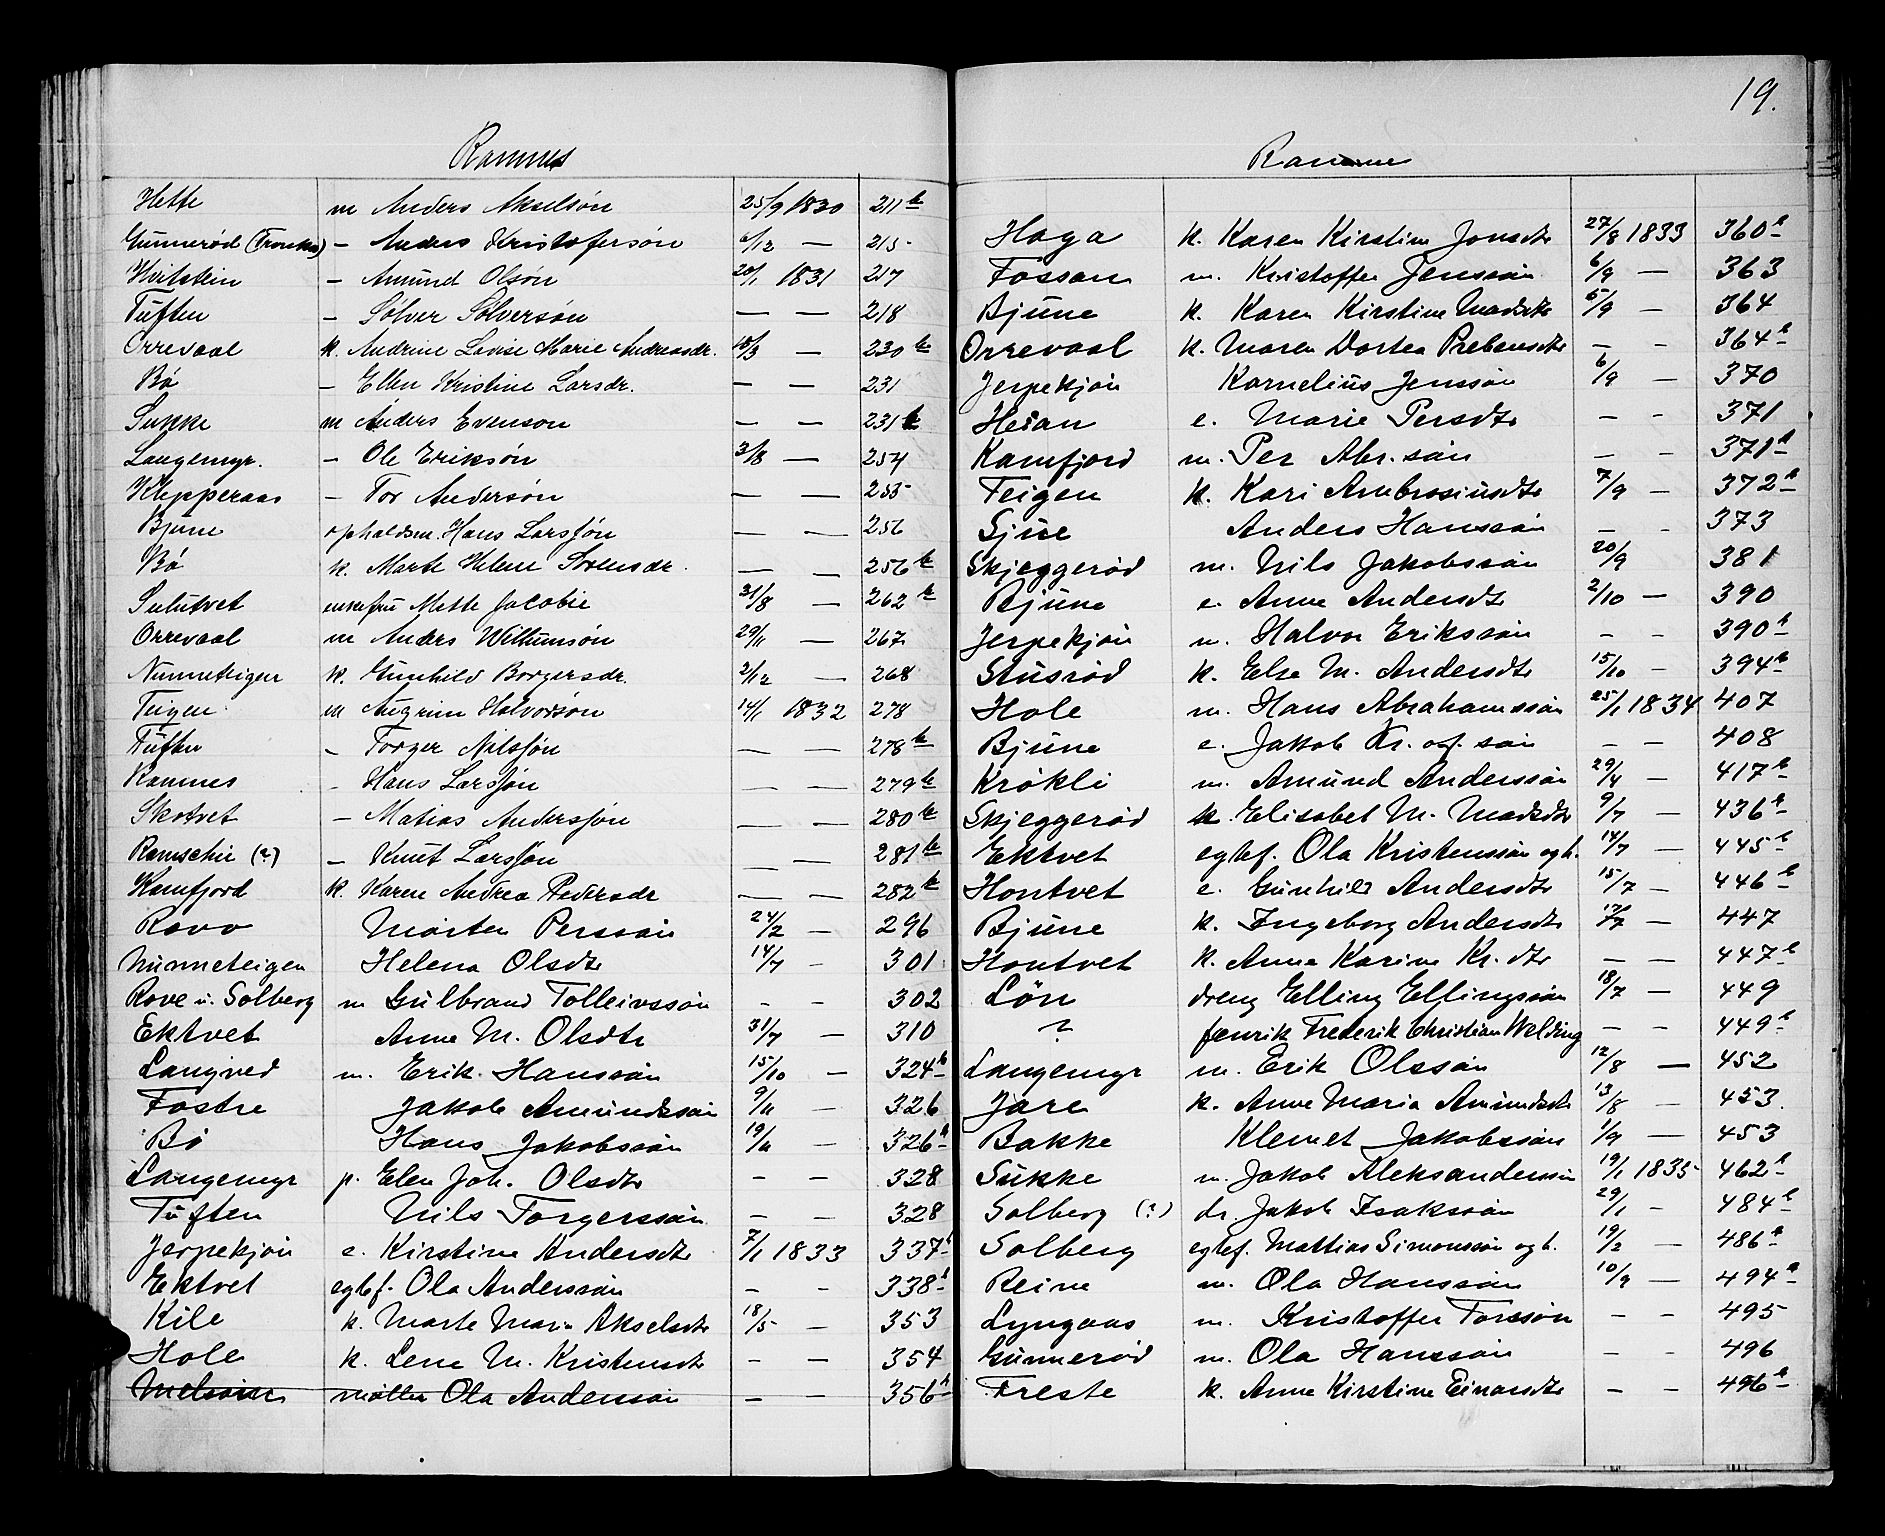 19.
Ramnes
Hette m Anders Akselsøn 25/9 1830 211b
Gunnerød - Anders Kristofersøn 6/12 — 215
Hvitstein - Amund Olsøn 20/1 1831 217
Tuften - Sølver Sølversøn — — 218
Orrevaal k. Andrine Lovise Marie Andreasdr. 18/3 — 230b
Bø - Ellen Kristine Larsdr. — — 231
Sukke m Anders Evenson — — 231b
Langemyr. - Ole Eriksøn 3/8 — 254
Klopperaas - Tor Andersøn — — 255
Bjune opholdsm. Hans Larssøn — — 256
Bø k. Marte Helene Sørensdr. — — 256b
Sulutvet Mette Jacobie 31/8 — 262b
Orrevaal m Anders Willumsøn 29/11 — 267
Nunneteigen k. Gunhild Borgersdr. 2/12 — 268
Teigen m Augrim Halvorsøn 14/1 1832 278
Tuften - Torger Nilssøn — — 278b
Ramnes - Hans Larssøn — — 279b
Skotvet - Matias Anderssøn — — 280b
Ramschir (?) - Knut Larssøn — — 281b
Kamfjord k. Karen Andrea Pedersdr — — 282b
Rovo Morten Perssøn 24/2 — 296
Nunneteigen Helena Olsdtr 14/7 - 301
Rove u. Solberg m Gulbrand Tolleivssøn - - 302
Ektvet Anne M. Olsdtr 31/7 — 310
Langved m. Erik Hanssøn 15/10 — 324b
Fostre Jakob Amundssøn 9/11 — 326
Bø Hans Jakobssøn 19/11 — 326b
Langemyr p. Elen Joh. Olsdtr - - 328
Tuften Nils Torgerssøn - - 328
Jerpekjøn e. Kirstine Andersdtr 7/1 1833 337b
Ektvet egtef. Ola Anderssøn - - 338b
Kile k. Marte Maria Akselsdtr 18/5 — 353
Hole k. Lene M. Kristensdtr - — 354
Melsom møller Ola Anderssøn - — 356b
Ramnes
Haga k. Karen Kirstine Jonsdtr 27/8 1833 360b
Fossan m. Kristoffer Jenssøn 6/9 — 363
Bjune k. Karen Kirstine Madsdtr 5/9 — 364
Orrevaal k. Maren Dortea Prebensdtr - - 364b
Jerpekjøn Kornelius Jenssøn 6/9 — 370
Hesan e. Marie Persdtr - - 371
Kamfjord m. Per Abr.søn - - 371b
Teigen k. Kari Ambrosiusdtr 7/9 — 372b
Sjue Anders Hanssøn - - 373
Skjeggerød m. Nils Jakobssøn 20/9 381
Bjune e. Anne Andersdtr 2/10 — 390
Jerpekjøn m. Halvor Erikssøn - - 390b
Stusrød k. Else M. Andersdtr 15/10 - 394b
Hole m. Hans Abrahamssøn 25/1 1834 407
Bjune e. Jakob Kr.of.søn - — 408
Krøkli m. Amund Anderssøn 29/4 — 417b
Skjeggerød k. Elisabet M. Madsdtr 9/7 — 436b
Ektvet egtef. Ola Kristenssøn og h. 14/7 — 445b
Hontvet e. Gunhild Andersdtr 15/7 — 446b
Bjune k. Ingeborg Andersdtr 17/7 — 447
Hontvet k. Anne Karine Kr.dtr — — 447b
Løn dreng Elling Ellingssøn 18/7 — 449
? fenrik Frederik Christian Welding - — 449b
Langemyr m. Erik Olssøn 12/8 — 452
Jare k. Anne Maria Amundsdtr 13/8 — 453
Bakke Klemet Jakobssøn 1/9 — 453
Sukke m. Jakob Aleksanderssøn 19/1 1835 462b
Solberg (?) dr. Jakob Isakssøn 29/1 - 484b
Solberg egtef. Mattias Simonssøn og h. 19/2 — 486b
Reine m. Ola Hanssøn 10/9 — 494b
Lyngaas m. Kristoffer Torssøn - - 495
Gunnerød m. Ola Hanssøn - - 496
Freste k. Anne Kirstine Einarsdtr - - 496b